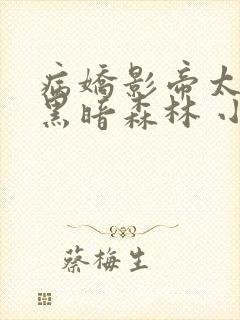 病嬌影帝太
黑暗森林 小
蔡梅生